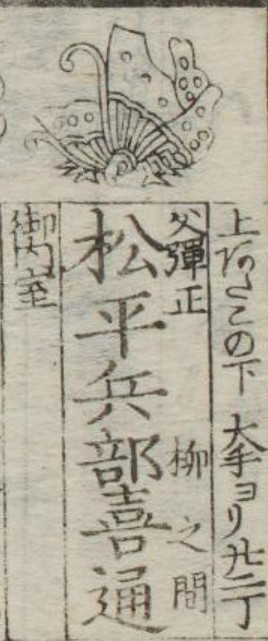 上あたこの下 大手ヨリ廿二丁
父彈正
柳之間
松平兵部喜通
御内室